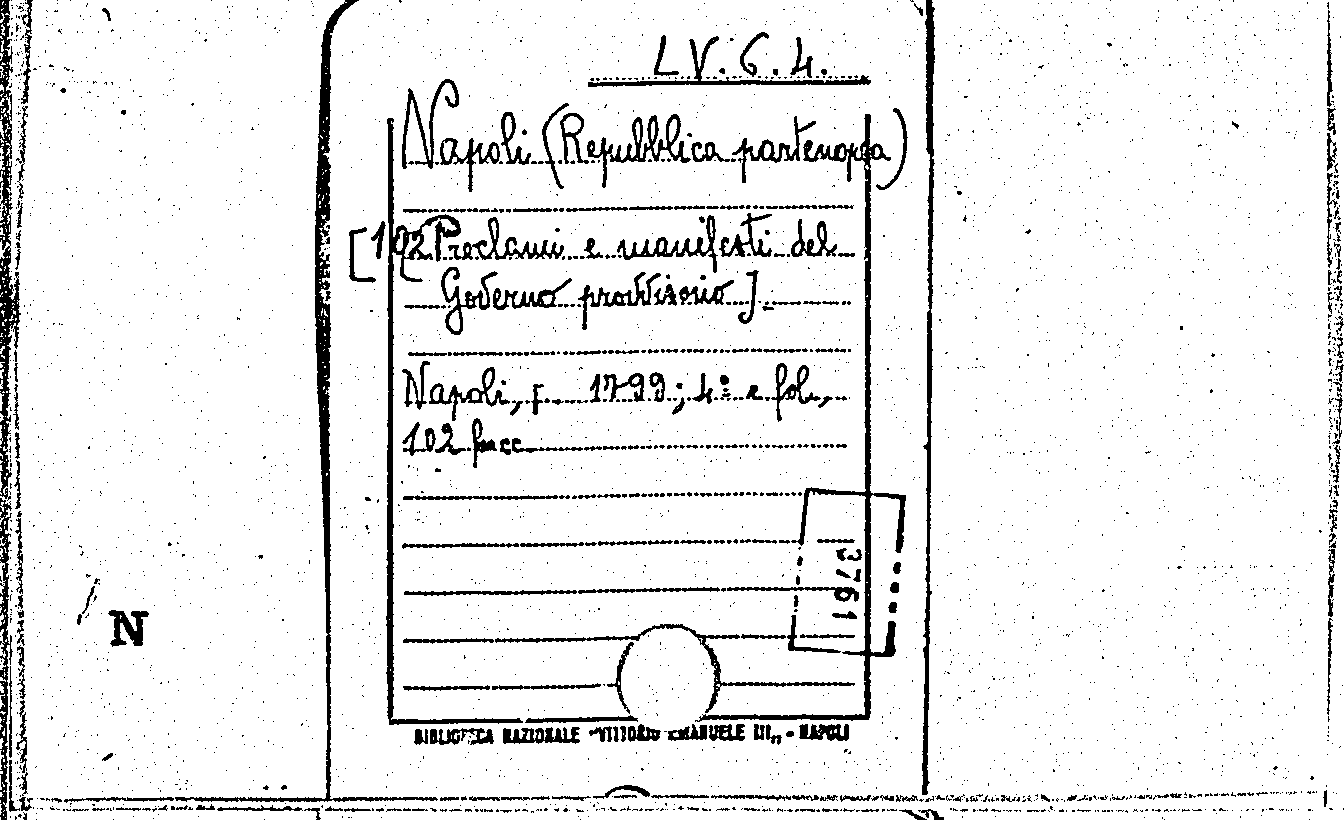 LV. 6. 4.
Napoli (Repubblica partenopea)
[102 Proclami e manifesti del
Governo provvisorio].
Napoli, 1799; 4º e fol.,
102 facc.
3761
N
BIBLIOTECA NAZIONALE "VITTORIO EMANUELE III„ - NAPOLI